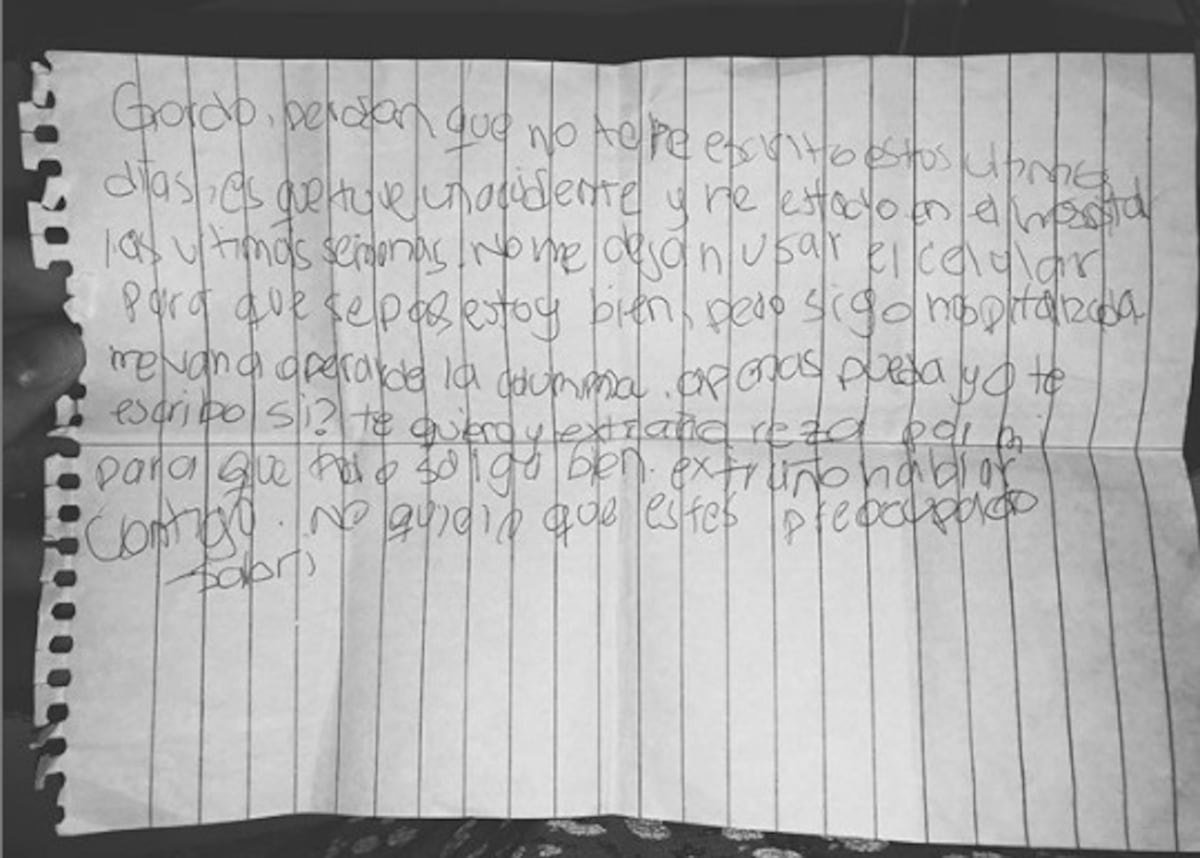 Gordo, perdon que no te he escrito estos ultimos
dias, es que tuve un acidente y he estado en el hospital
las ultimas semanas. No me dejan usar el celular
Para que sepas estoy bien, pero sigo hospitalizada
me van a operar de la columna. apenas pueda yo te
escribo si? te quiero y extraño reza por mi
para que todo salga bien. extraño hablar
Contigo. No quiero que estes preocupado
Sabri